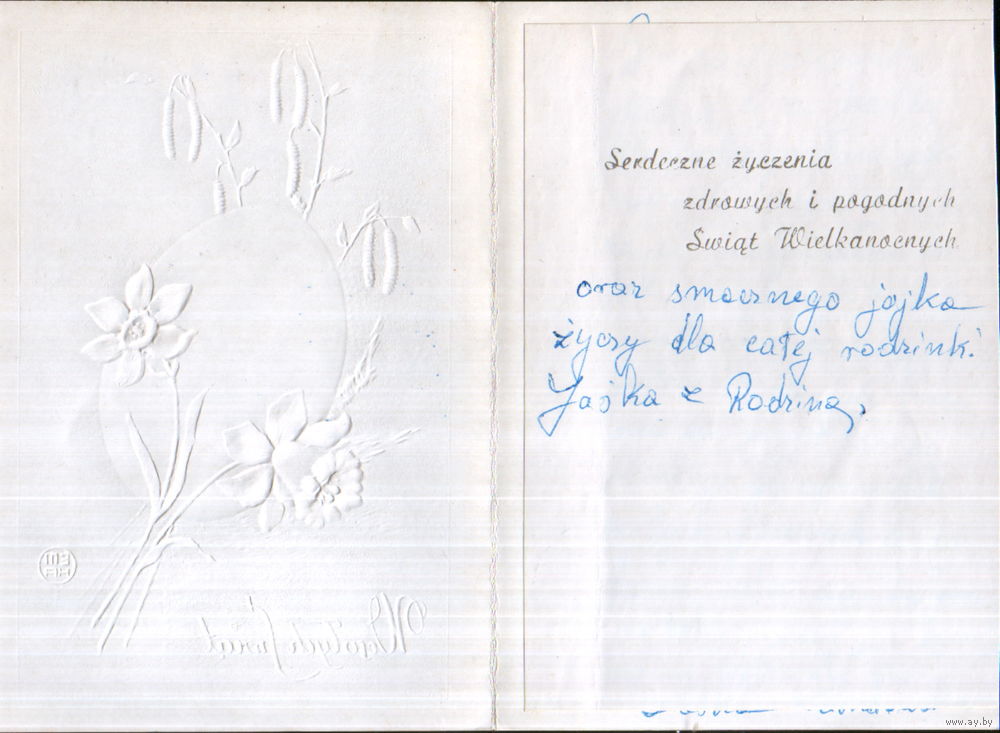 Serdeczne życzenia
zdrowych i pogodnych
Świąt Wielkanocnych
oraz smacznego jajka
życzy dla całej rodzinki
Jaśka z Rodziną,
Wesołych Świąt
www.ay.by